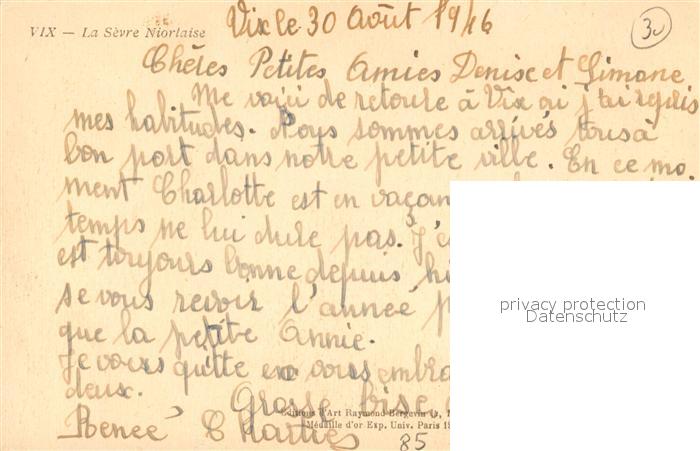 VIX — La Sèvre Niortaise
Vix le 30 Août 1946
30
Chères Petites Amies Denise et Simone
Me voici de retoure à Vix ou j'ai repris
mes habitudes. Nous sommes arrivés tous à
bon port dans notre petite ville. En ce mo
ment Charlotte est en vacan
temps ne lui dure pas. J'es
est toujours bonne depuis hi
se vous revoir l'année p
que la petite Annie.
Je vous quitte en vous embra
deux.
Grosse bise
Renée
85
Editions d'Art Raymond Bergevin
Médaille d'or Exp. Univ. Paris 19
privacy protection
Datenschutz